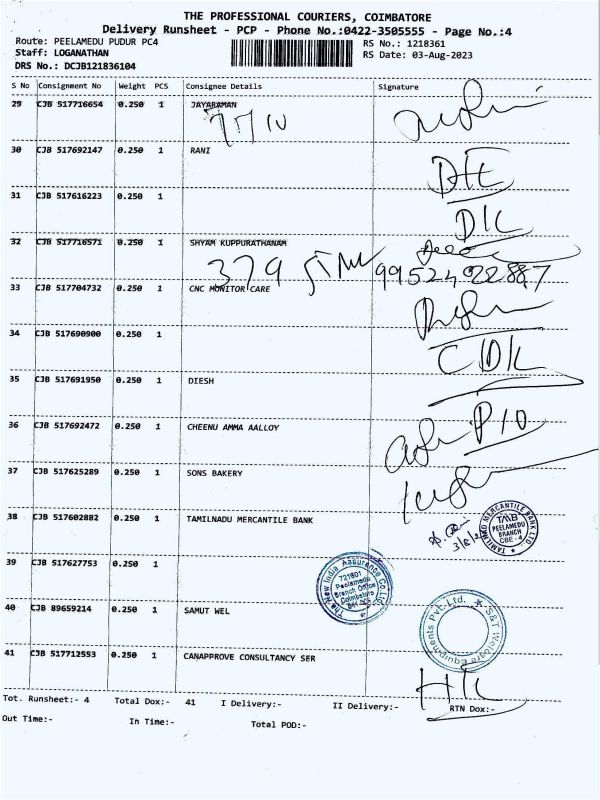 THE PROFESSIONAL COURIERS, COIMBATORE
Delivery Runsheet - PCP - Phone No.:0422-3505555 - Page No.:4
Route: PEELAMEDU PUDUR PC4
RS No.: 1218361
Staff: LOGANATHAN
RS Date: 03-Aug-2023
DRS No.: DCJB121836104
S No Consignment No Weight PCS Consignee Details Signature
29 CJB 517716654 0.250 1 JAYARAMAN
30 CJB 692147 0.250 1 RANI
31 CJB 517616223 0.250 1
D/L
32 CJB 517716571 0.250 1 SHYAM KUPPURATHANAM
379 99524 22887
33 CJB 517704732 0.250 1 CNC MONITOR CARE
34 CJB 517690900 0.250 1
D/L
35 CJB 517691950 0.250 1 DIESH
36 CJB 517692472 0.250 1 CHEENU AMMA AALLOY
P10
37 CJB 517625289 0.250 1 SONS BAKERY
38 CJB 517602882 0.250 1 TAMILNADU MERCANTILE BANK
TAMILNAD MERCANTILE BANK LTD
TMB
PEELAMEDU
BRANCH
CBE - 4
39 CJB 517627753 0.250 1
The New India Assurance Co. Ltd.
721601
Peelamedu
Branch Office
Coimbatore
40 CJB 89659214 0.250 1 SAMUT WEL
S&T Welcare Equipments Pvt. Ltd.
41 CJB 517712553 0.250 1 CANAPPROVE CONSULTANCY SER
Tot. Runsheet:- 4 Total Dox:- 41 I Delivery:- II Delivery:- RTN Dox:-
Out Time:- In Time:- Total POD:-